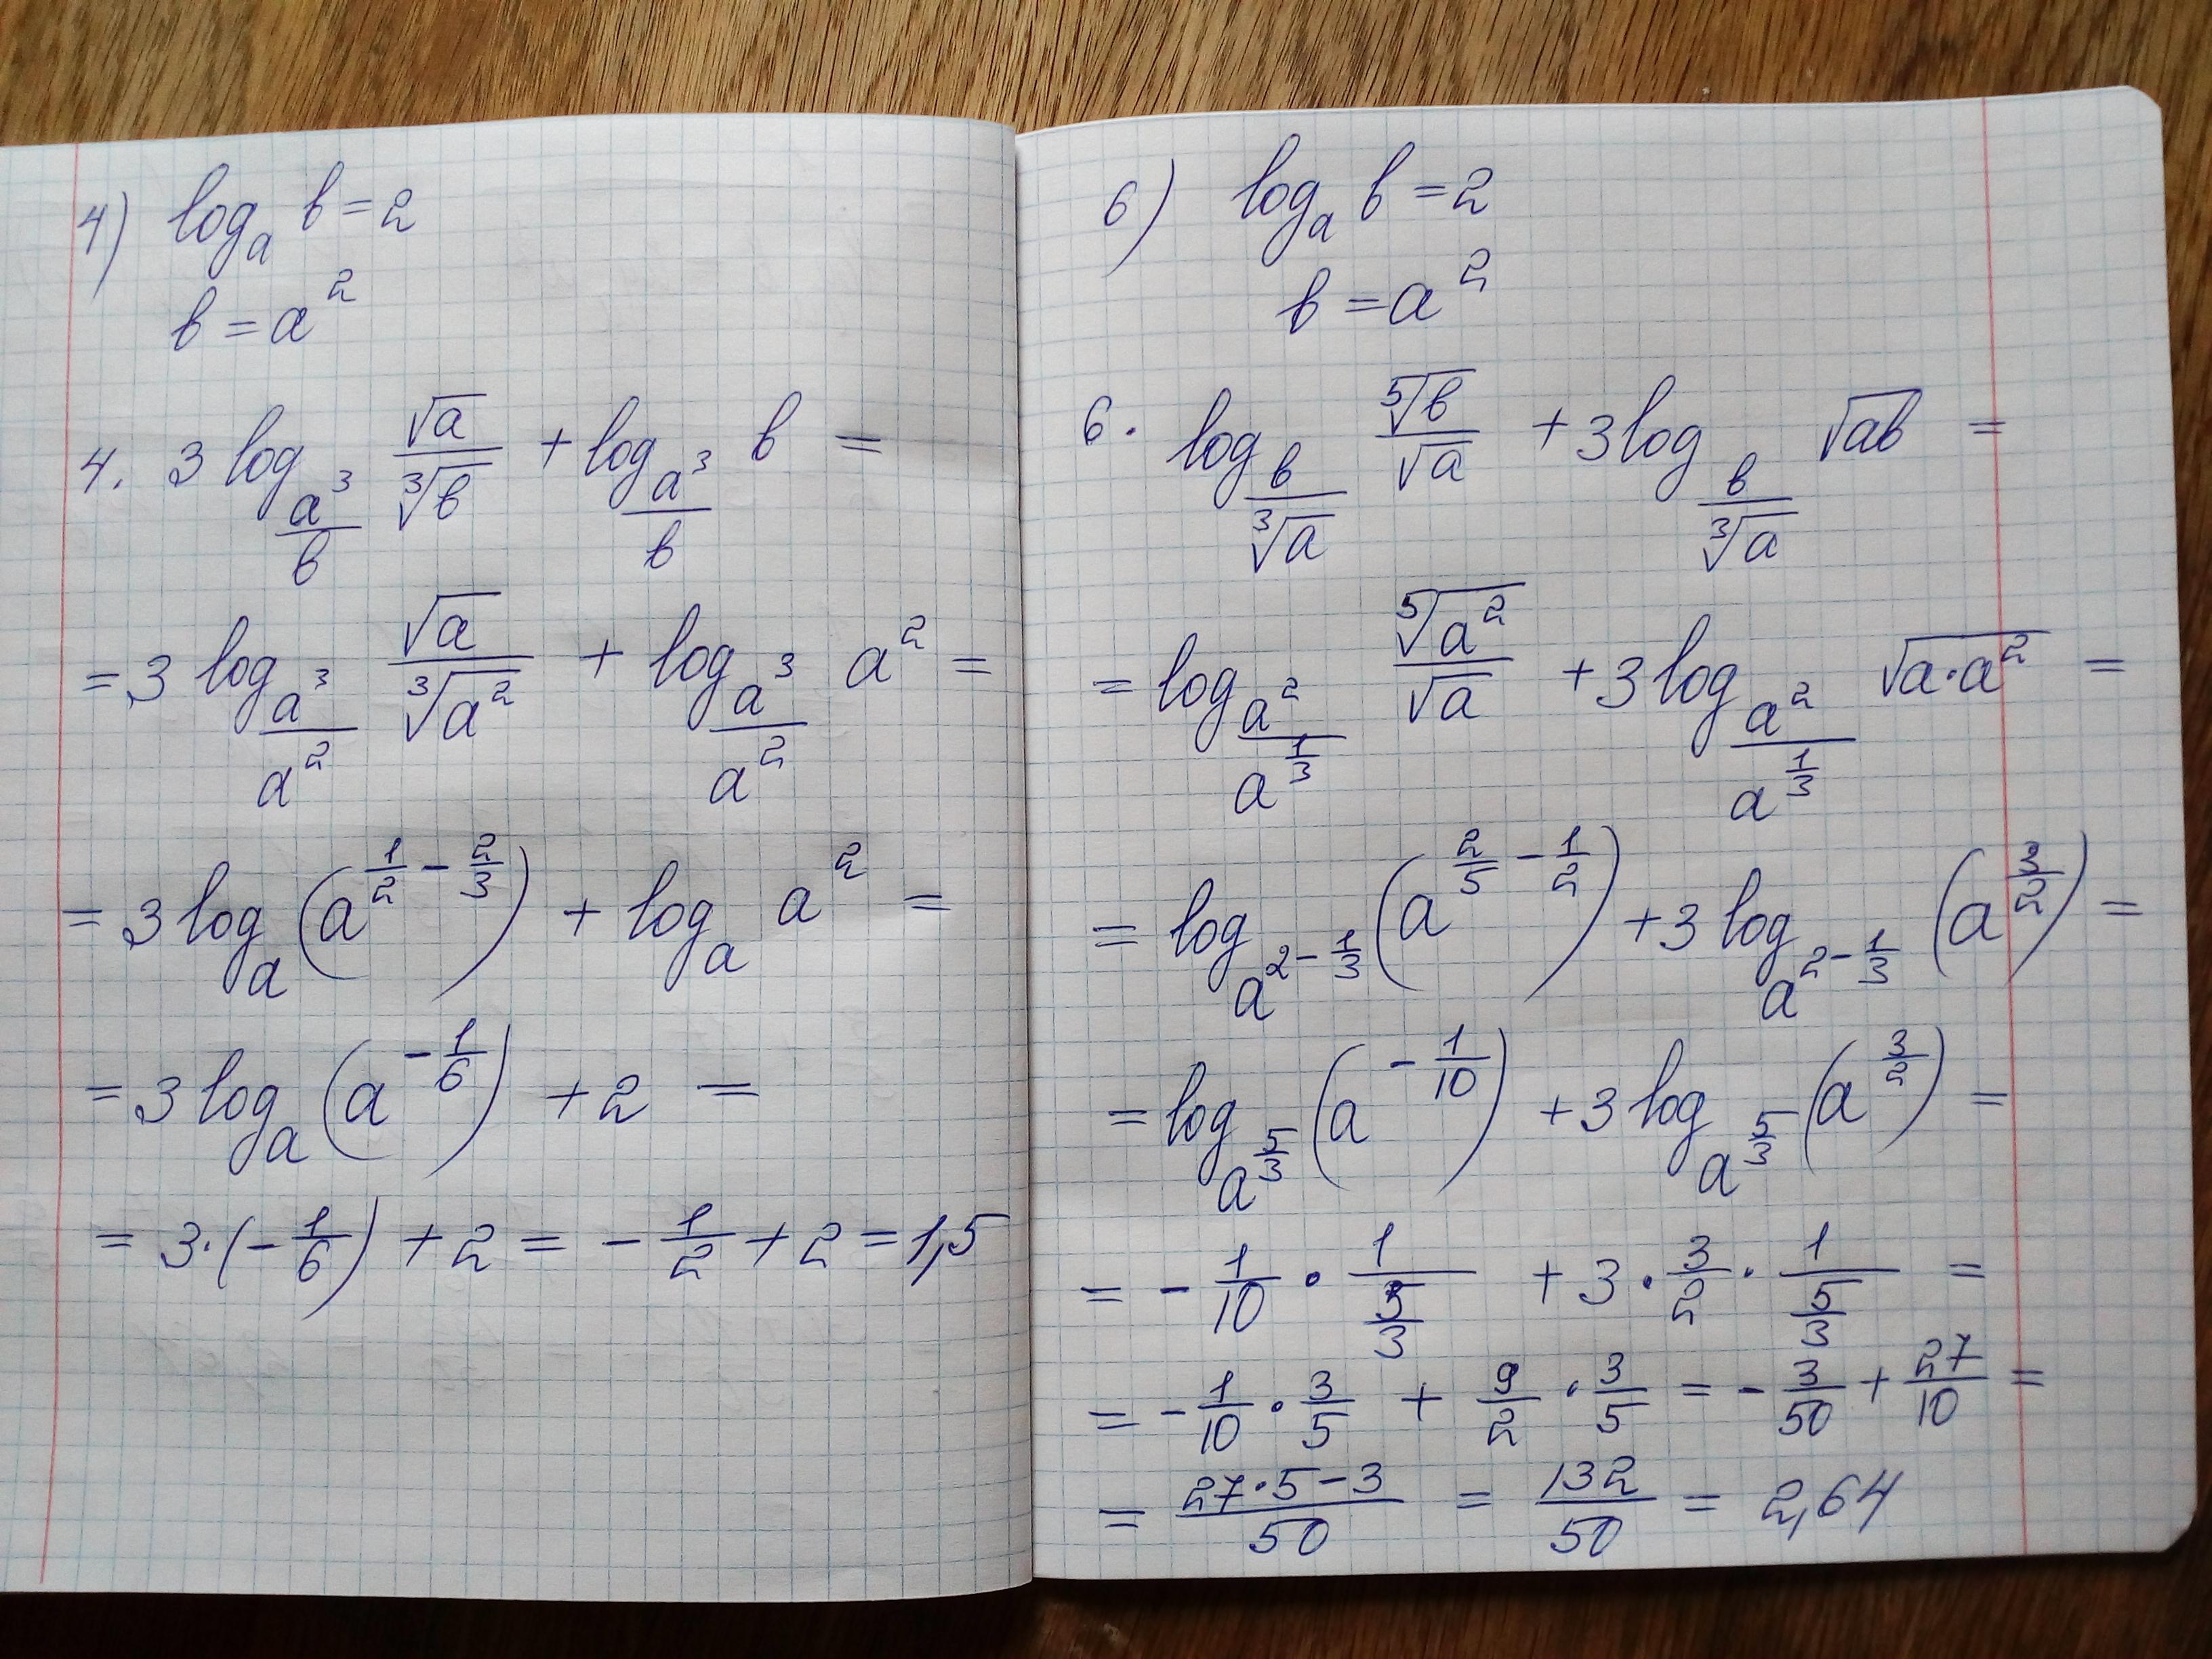 4) log_a b = 2
b = a^2
4. 3 log_{a^3/b} √a/∛b + log_{a^3/b} b =
= 3 log_{a^3/a^2} √a/∛(a^2) + log_{a^3/a^2} a^2 =
= 3 log_a (a^{1/2 - 2/3}) + log_a a^2 =
= 3 log_a (a^{-1/6}) + 2 =
= 3·(-1/6) + 2 = -1/2 + 2 = 1,5
6) log_a b = 2
b = a^2
6. log_{b/∛a} ⁵√b/√a + 3 log_{b/∛a} √(ab) =
= log_{a^2/a^{1/3}} ⁵√(a^2)/√a + 3 log_{a^2/a^{1/3}} √(a·a^2) =
= log_{a^{2 - 1/3}} (a^{2/5 - 1/2}) + 3 log_{a^{2 - 1/3}} (a^{3/2}) =
= log_{a^{5/3}} (a^{-1/10}) + 3 log_{a^{5/3}} (a^{3/2}) =
= -1/10 · 1/(5/3) + 3 · 3/2 · 1/(5/3) =
= -1/10 · 3/5 + 9/2 · 3/5 = -3/50 + 27/10 =
= (27·5-3)/50 = 132/50 = 2,64